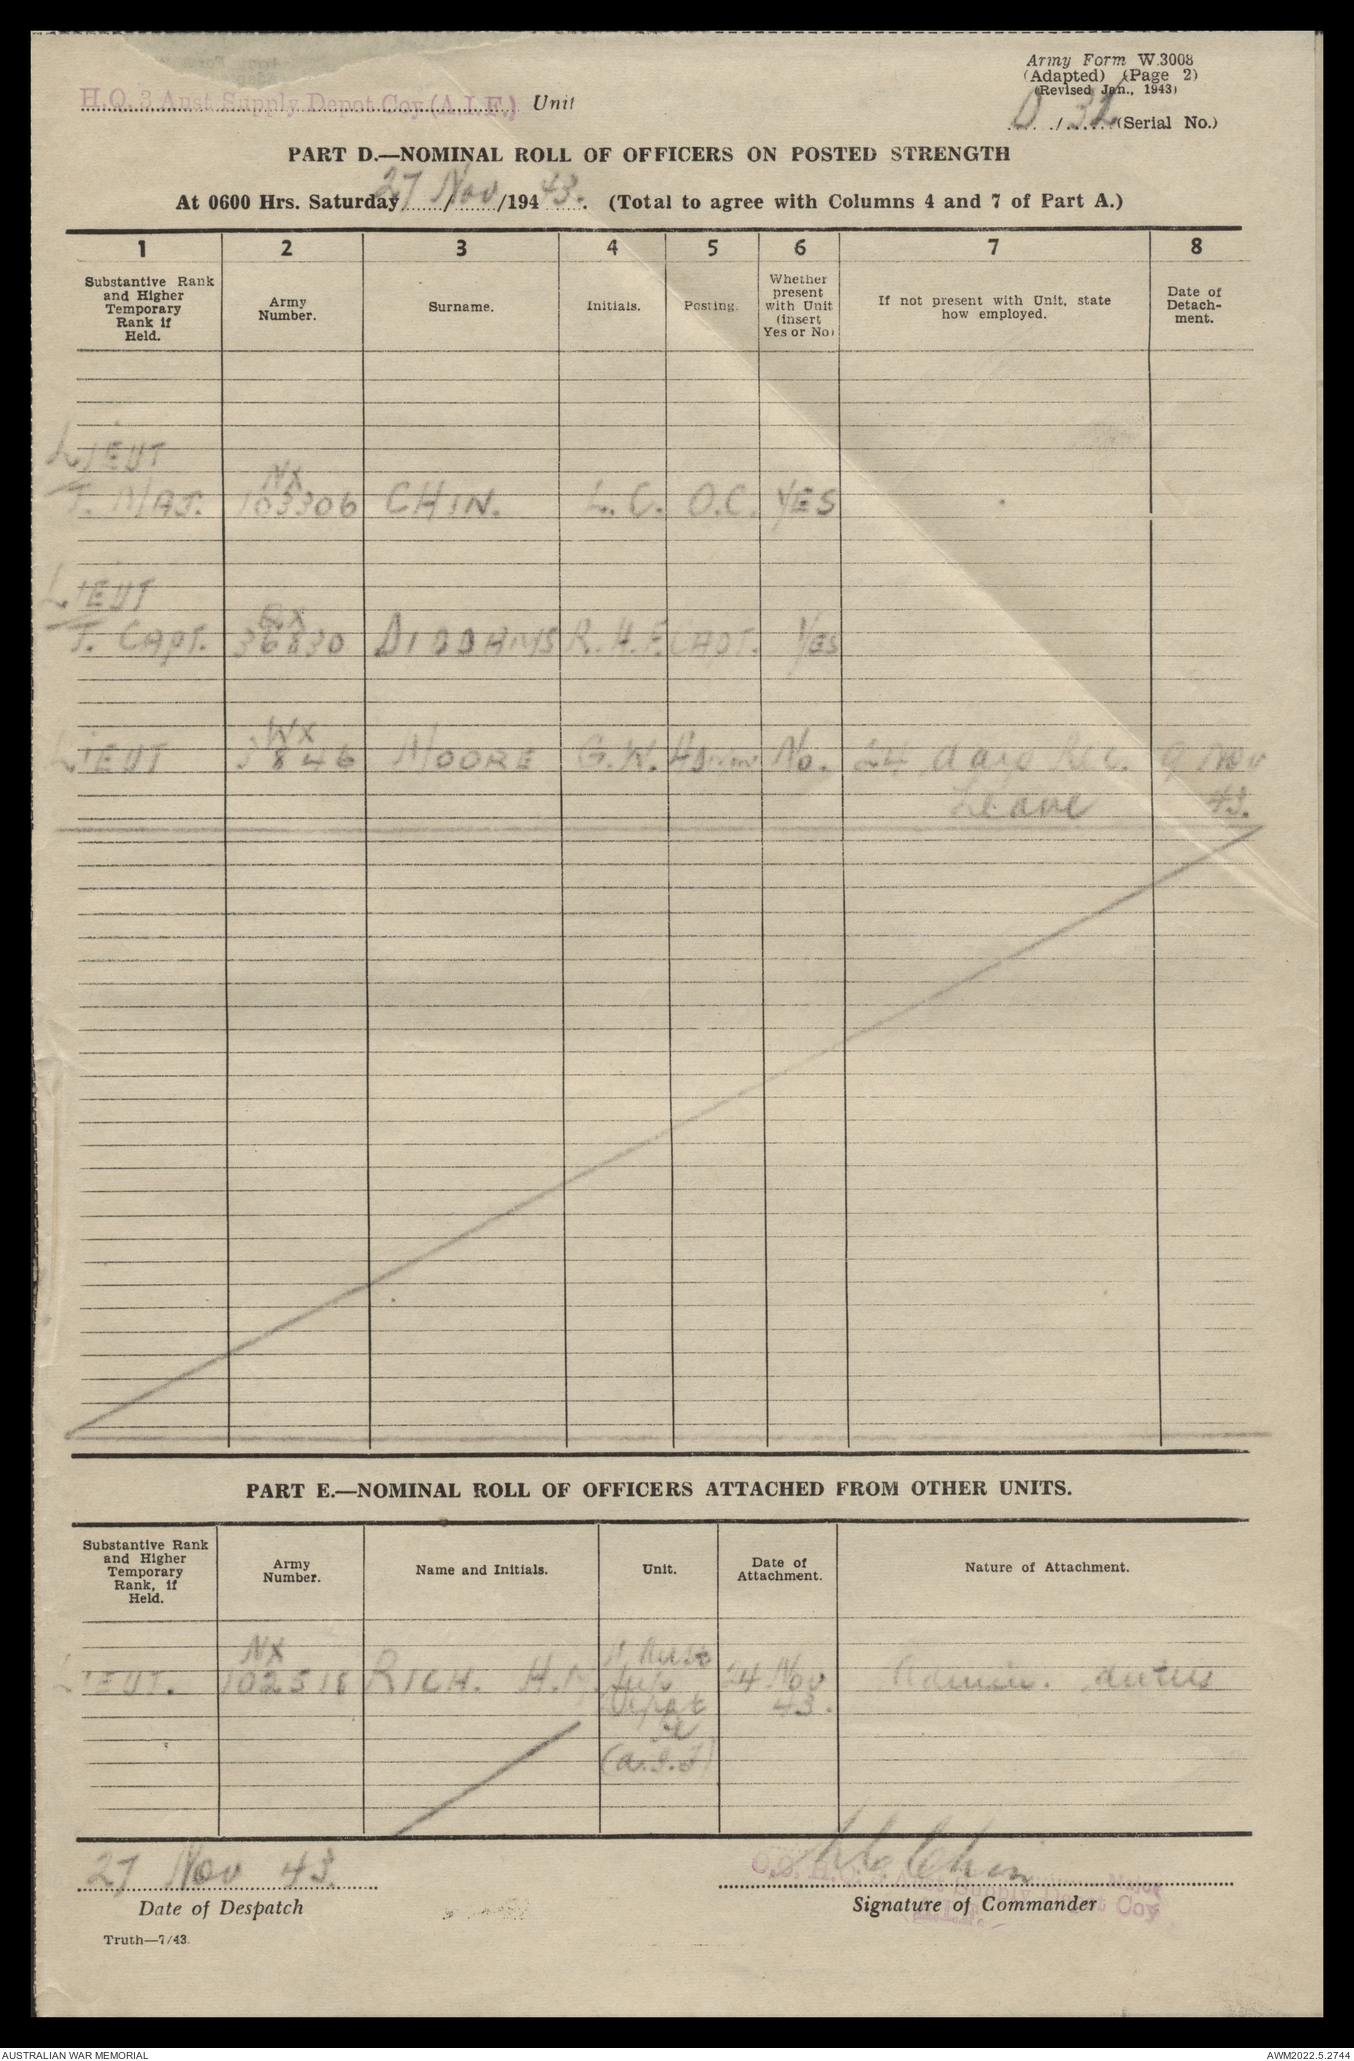 Army Form W.3008
(Adapted) (Page 2)
(Revised Jan., 1943)
H.Q. 3 Aust Supply Depot Coy (A.I.F.) Unit
D / 32 (Serial No.)
PART D.—NOMINAL ROLL OF OFFICERS ON POSTED STRENGTH
At 0600 Hrs. Saturday 27 / Nov /194 43. (Total to agree with Columns 4 and 7 of Part A.)
1 2 3 4 5 6 7 8
Substantive Rank and Higher Temporary Rank if Held.
Army Number.
Surname.
Initials.
Posting.
Whether present with Unit (insert Yes or No)
If not present with Unit, state how employed.
Date of Detach-ment.
LIEUT
NX
T. MAJ. 103306 CHIN. L. C. O.C. YES
LIEUT
QX
T. CAPT. 36830 DIDDAMS R. H. F. CAPT. YES
WX
LIEUT 3846 MOORE G. W. No. 24 days Rec. 9 Nov
Leave 43.
PART E.—NOMINAL ROLL OF OFFICERS ATTACHED FROM OTHER UNITS.
Substantive Rank and Higher Temporary Rank, if Held.
Army Number.
Name and Initials.
Unit.
Date of Attachment.
Nature of Attachment.
NX Aust
LIEUT. 102518 RICH. H. M. Sup 24 Nov Admin. duties
Depot 43.
(A.I.F)
27 Nov 43.
L C Chin
Major
Supply Depot Coy
Date of Despatch
Signature of Commander
Truth—7/43.
AUSTRALIAN WAR MEMORIAL
AWM2022.5.2744